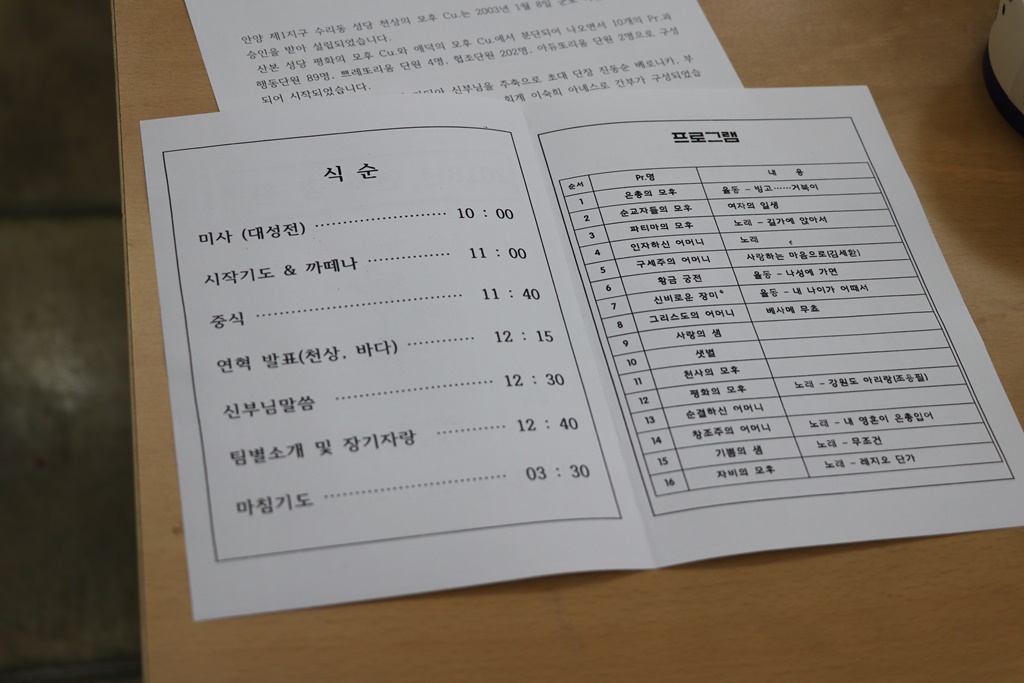 안양 제1지구 수리동 성당 천상의 모후 Cu.는 2003년 1월 8일
승인을 받아 설립되었습니다.
산본 성당 평화의 모후 Cu.와 애덕의 모후 Cu.에서 분단되어 나오면서 10개의 Pr.과
행동단원 89명, 쁘레또리움 단원 4명, 협조단원 202명, 아듀또리움 단원 2명으로 구성
되어 시작되었습니다.
신부님을 주축으로 초대 단장 진동순 베로니카, 부
회계 이숙희 아네스로 간부가 구성되었습
식 순
미사 (대성전) 10 : 00
시작기도 & 까떼나 11 : 00
중식 11 : 40
연혁 발표(천상, 바다) 12 : 15
신부님말씀 12 : 30
팀별소개 및 장기자랑 12 : 40
마침기도 03 : 30
프로그램
순서 Pr.명 내 용
1 은총의 모후 율동 - 빙고……거북이
2 순교자들의 모후 여자의 일생
3 파티마의 모후 노래 - 길가에 앉아서
4 인자하신 어머니 노래
5 구세주의 어머니 사랑하는 마음으로(김세환)
6 황금 궁전 율동 - 나성에 가면
7 신비로운 장미 율동 - 내 나이가 어때서
8 그리스도의 어머니 베사메 무쵸
9 사랑의 샘
10 샛별
11 천사의 모후
12 평화의 모후 노래 - 강원도 아리랑(조용필)
13 순결하신 어머니
14 창조주의 어머니 노래 - 내 영혼이 은총입어
15 기쁨의 샘 노래 - 무조건
16 자비의 모후 노래 - 레지오 단가